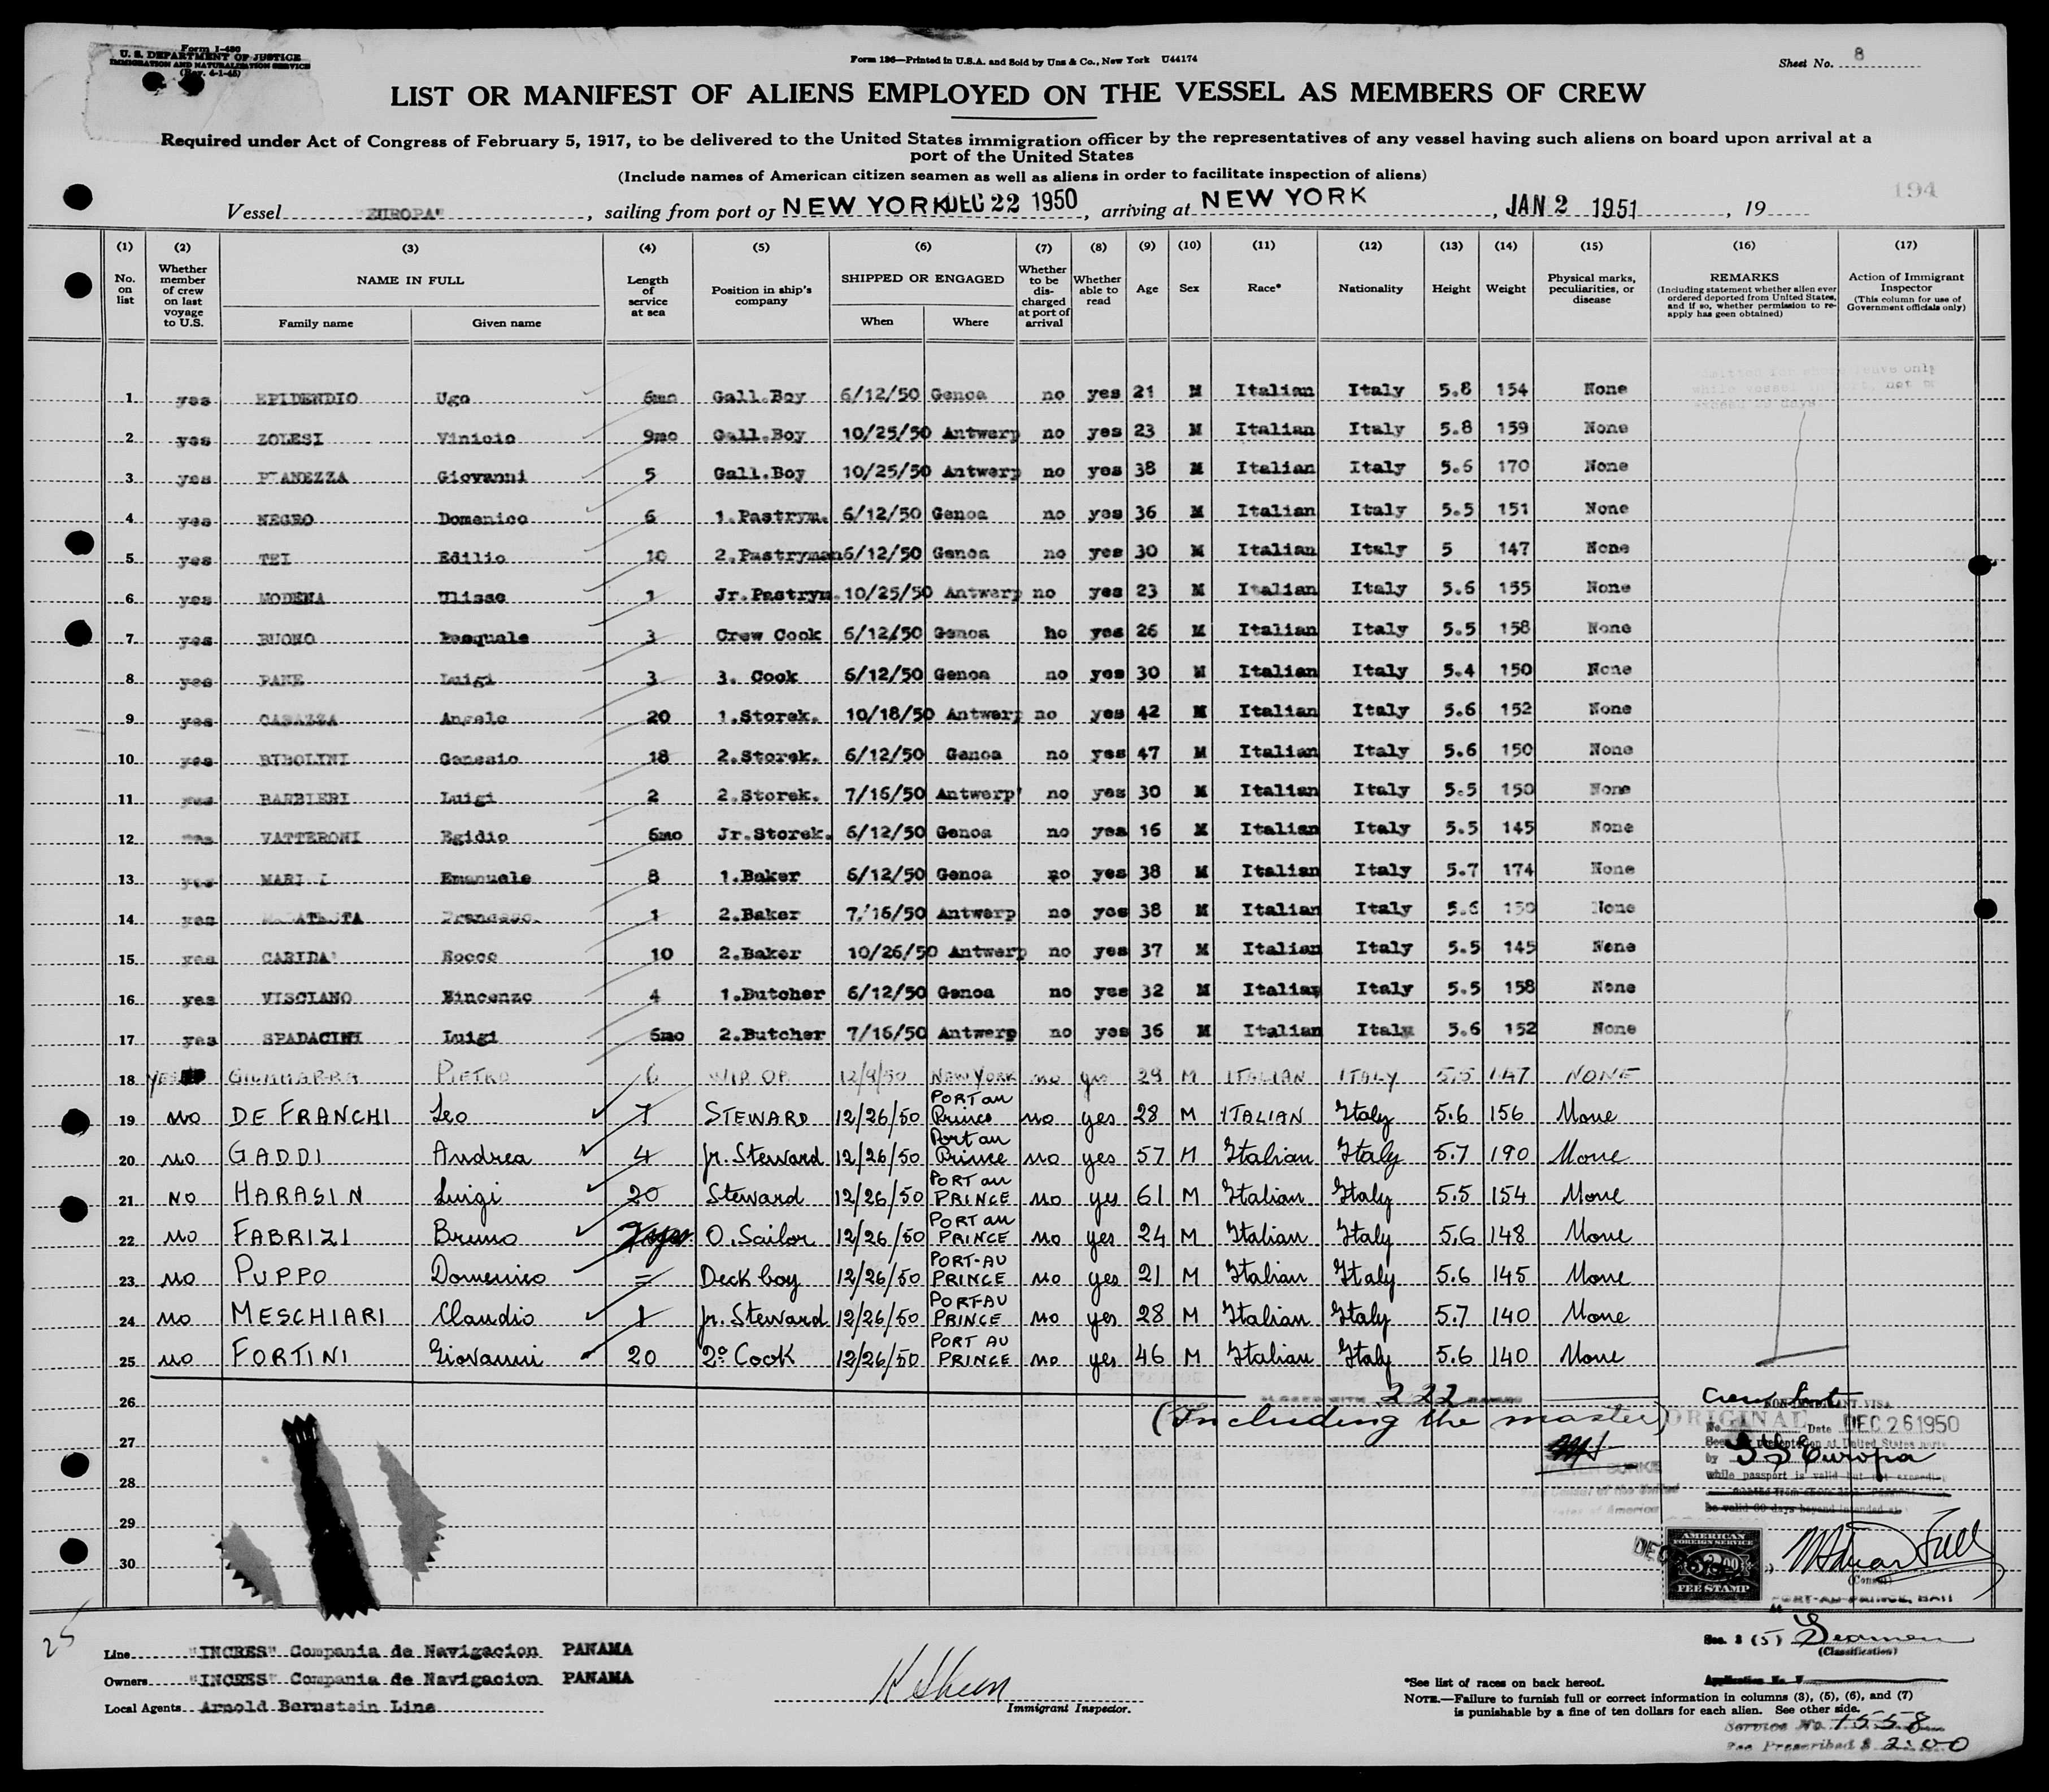 Form I-480
U. S. DEPARTMENT OF JUSTICE
IMMIGRATION AND NATURALIZATION SERVICE
(Rev. 4-1-45)
Form 186—Printed in U.S.A. and Sold by Unz & Co., New York U44174
Sheet No. 8
LIST OR MANIFEST OF ALIENS EMPLOYED ON THE VESSEL AS MEMBERS OF CREW
Required under Act of Congress of February 5, 1917, to be delivered to the United States immigration officer by the representatives of any vessel having such aliens on board upon arrival at a
port of the United States
(Include names of American citizen seamen as well as aliens in order to facilitate inspection of aliens)
194
Vessel "EUROPA", sailing from port of NEW YORK DEC 22 1950, arriving at NEW YORK, JAN 2 1951, 19
(1) (2) (3) (4) (5) (6) (7) (8) (9) (10) (11) (12) (13) (14) (15) (16) (17)
No. on list
Whether member of crew on last voyage to U.S.
NAME IN FULL
Family name Given name
Length of service at sea
Position in ship's company
SHIPPED OR ENGAGED
When Where
Whether to be discharged at port of arrival
Whether able to read
Age Sex Race* Nationality Height Weight
Physical marks, peculiarities, or disease
REMARKS
(Including statement whether alien ever ordered deported from United States, and if so, whether permission to re-apply has geen obtained)
Action of Immigrant Inspector
(This column for use of Government officials only)
1 yes EPIDENDIO Ugo 6mo Gall.Boy 6/12/50 Genoa no yes 21 M Italian Italy 5.8 154 None
2 yes ZOLESI Vinicio 9mo Gall.Boy 10/25/50 Antwerp no yes 23 M Italian Italy 5.8 159 None
3 yes PIANEZZA Giovanni 5 Gall.Boy 10/25/50 Antwerp no yes 38 M Italian Italy 5.6 170 None
4 yes NEGRO Domenico 6 1.Pastrym. 6/12/50 Genoa no yes 36 M Italian Italy 5.5 151 None
5 yes TEI Edilio 10 2.Pastryman 6/12/50 Genoa no yes 30 M Italian Italy 5 147 None
6 yes MODENA Ulisse 1 Jr.Pastrym. 10/25/50 Antwerp no yes 23 M Italian Italy 5.6 155 None
7 yes BUONO Pasquale 3 Crew Cook 6/12/50 Genoa no yes 26 M Italian Italy 5.5 158 None
8 yes PANE Luigi 3 3. Cook 6/12/50 Genoa no yes 30 M Italian Italy 5.4 150 None
9 yes CASAZZA Angelo 20 1.Storek. 10/18/50 Antwerp no yes 42 M Italian Italy 5.6 152 None
10 yes BIBOLINI Genesio 18 2.Storek. 6/12/50 Genoa no yes 47 M Italian Italy 5.6 150 None
11 yes BARBIERI Luigi 2 2.Storek. 7/16/50 Antwerp no yes 30 M Italian Italy 5.5 150 None
12 yes VATTERONI Egidio 6mo Jr.Storek. 6/12/50 Genoa no yes 16 M Italian Italy 5.5 145 None
13 yes Emanuele 8 1.Baker 6/12/50 Genoa no yes 38 M Italian Italy 5.7 174 None
14 yes 1 2.Baker 7/16/50 Antwerp no yes 38 M Italian Italy 5.6 150 None
15 yes CARIDA' Rocco 10 2.Baker 10/26/50 Antwerp no yes 37 M Italian Italy 5.5 145 None
16 yes VISCIANO Vincenzo 4 1.Butcher 6/12/50 Genoa no yes 32 M Italian Italy 5.5 158 None
17 yes SPADACINI Luigi 6mo 2.Butcher 7/16/50 Antwerp no yes 36 M Italian Italy 5.6 152 None
18 YES PIETRO 6 WIP OP 12/9/50 NEW YORK no yes 29 M ITALIAN ITALY 5.5 147 NONE
19 no DE FRANCHI Leo 7 STEWARD 12/26/50 PORT au Prince no yes 28 M ITALIAN Italy 5.6 156 None
20 no GADDI Andrea 4 Jr. Steward 12/26/50 Port au Prince no yes 57 M Italian Italy 5.7 190 None
21 NO HARASIN Luigi 20 Steward 12/26/50 PORT au PRINCE no yes 61 M Italian Italy 5.5 154 None
22 no FABRIZI Bruno O. Sailor 12/26/50 PORT au PRINCE no yes 24 M Italian Italy 5.6 148 None
23 no PUPPO Domenico = Deck boy 12/26/50 PORT-AU PRINCE no yes 21 M Italian Italy 5.6 145 None
24 no MESCHIARI Claudio 1 Jr. Steward 12/26/50 PORT-AU PRINCE no yes 28 M Italian Italy 5.7 140 None
25 no FORTINI Giovanni 20 2º Cook 12/26/50 PORT AU PRINCE no yes 46 M Italian Italy 5.6 140 None
26
27
28
29
30
222
(Including the master)
WALTER BURKE
of the United
States of America
Crew List
NON-IMMIGRANT VISA
ORIGINAL
No. Date DEC 26 1950
presentation at United States ports
by SS Europa
while passport is valid but not exceeding
be valid 60 days beyond intended
DEC
AMERICAN
FOREIGN SERVICE
$2.00
FEE STAMP
(Consul)
PORT-AU-PRINCE, HAITI
25
Sec. 3 (5) Seamen
(Classification)
Application No. V
Line "INCRES" Compania de Navigacion PANAMA
Owners "INCRES" Compania de Navigacion PANAMA
Local Agents Arnold Bernstein Line
Immigrant Inspector.
*See list of races on back hereof.
NOTE.—Failure to furnish full or correct information in columns (3), (5), (6), and (7)
is punishable by a fine of ten dollars for each alien. See other side.
Service No. 1558
Fee Prescribed $ 2.00